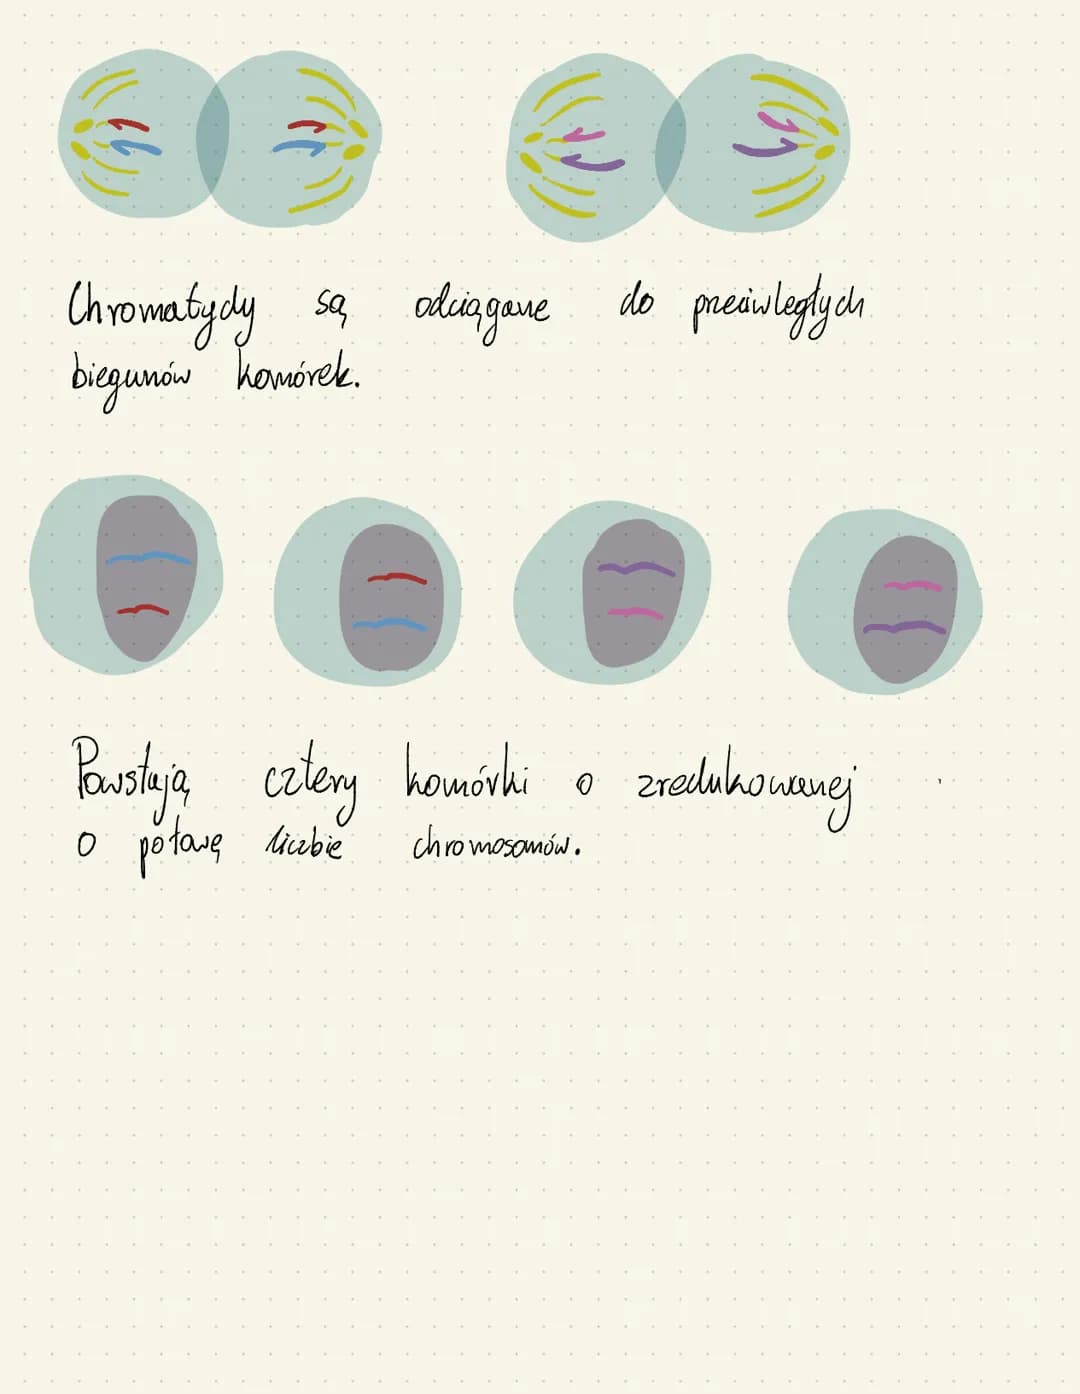 Chromatydy są odciągane do przeciwległych
biegunów komórek.
Powstają cztery komórki o zredukowanej
o połowę liczbie chromosomów.